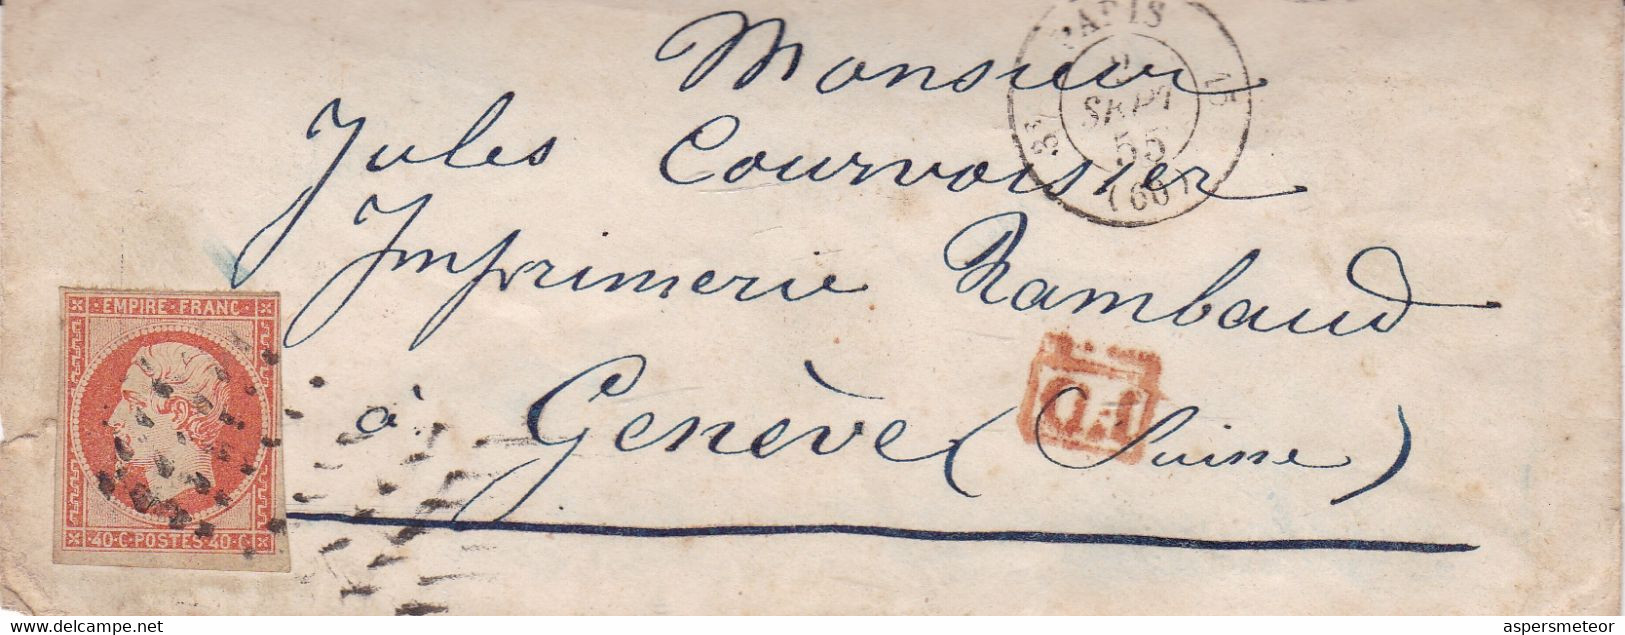 PARIS
9
SEPT
55
(60)
15
Monsieur
Jules Courvoisier
Imprimerie Rambaud
à Genève (Suisse)
P.D.
EMPIRE · FRANC ·
· 40 · C · POSTES · 40 · C ·
www.delcampe.net
aspersmeteor